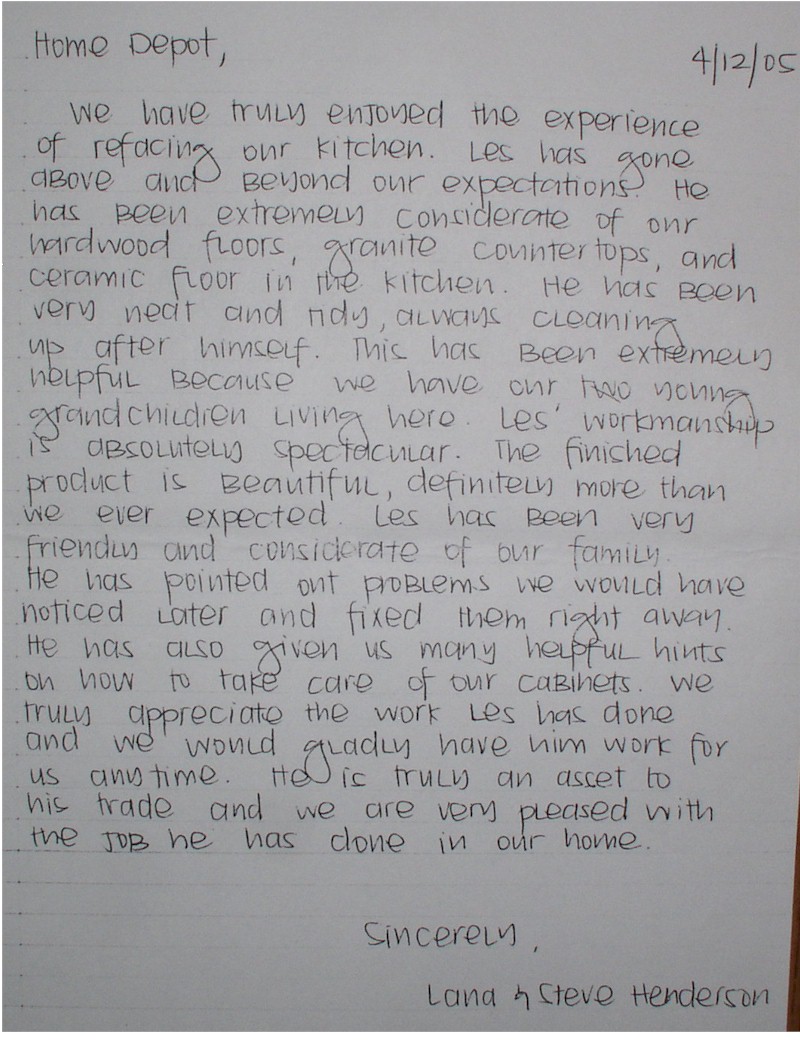 Home Depot,
4/12/05
We have truly enjoyed the experience
of refacing our kitchen. Les has gone
above and beyond our expectations. He
has been extremely considerate of our
hardwood floors, granite countertops, and
ceramic floor in the kitchen. He has been
very neat and tidy, always cleaning
up after himself. This has been extremely
helpful because we have our two young
grandchildren living here. Les' workmanship
is absolutely spectacular. The finished
product is beautiful, definitely more than
we ever expected. Les has been very
friendly and considerate of our family.
He has pointed out problems we would have
noticed later and fixed them right away.
He has also given us many helpful hints
on how to take care of our cabinets. We
truly appreciate the work Les has done
and we would gladly have him work for
us anytime. He is truly an asset to
his trade and we are very pleased with
the job he has done in our home.
Sincerely,
Lana & Steve Henderson